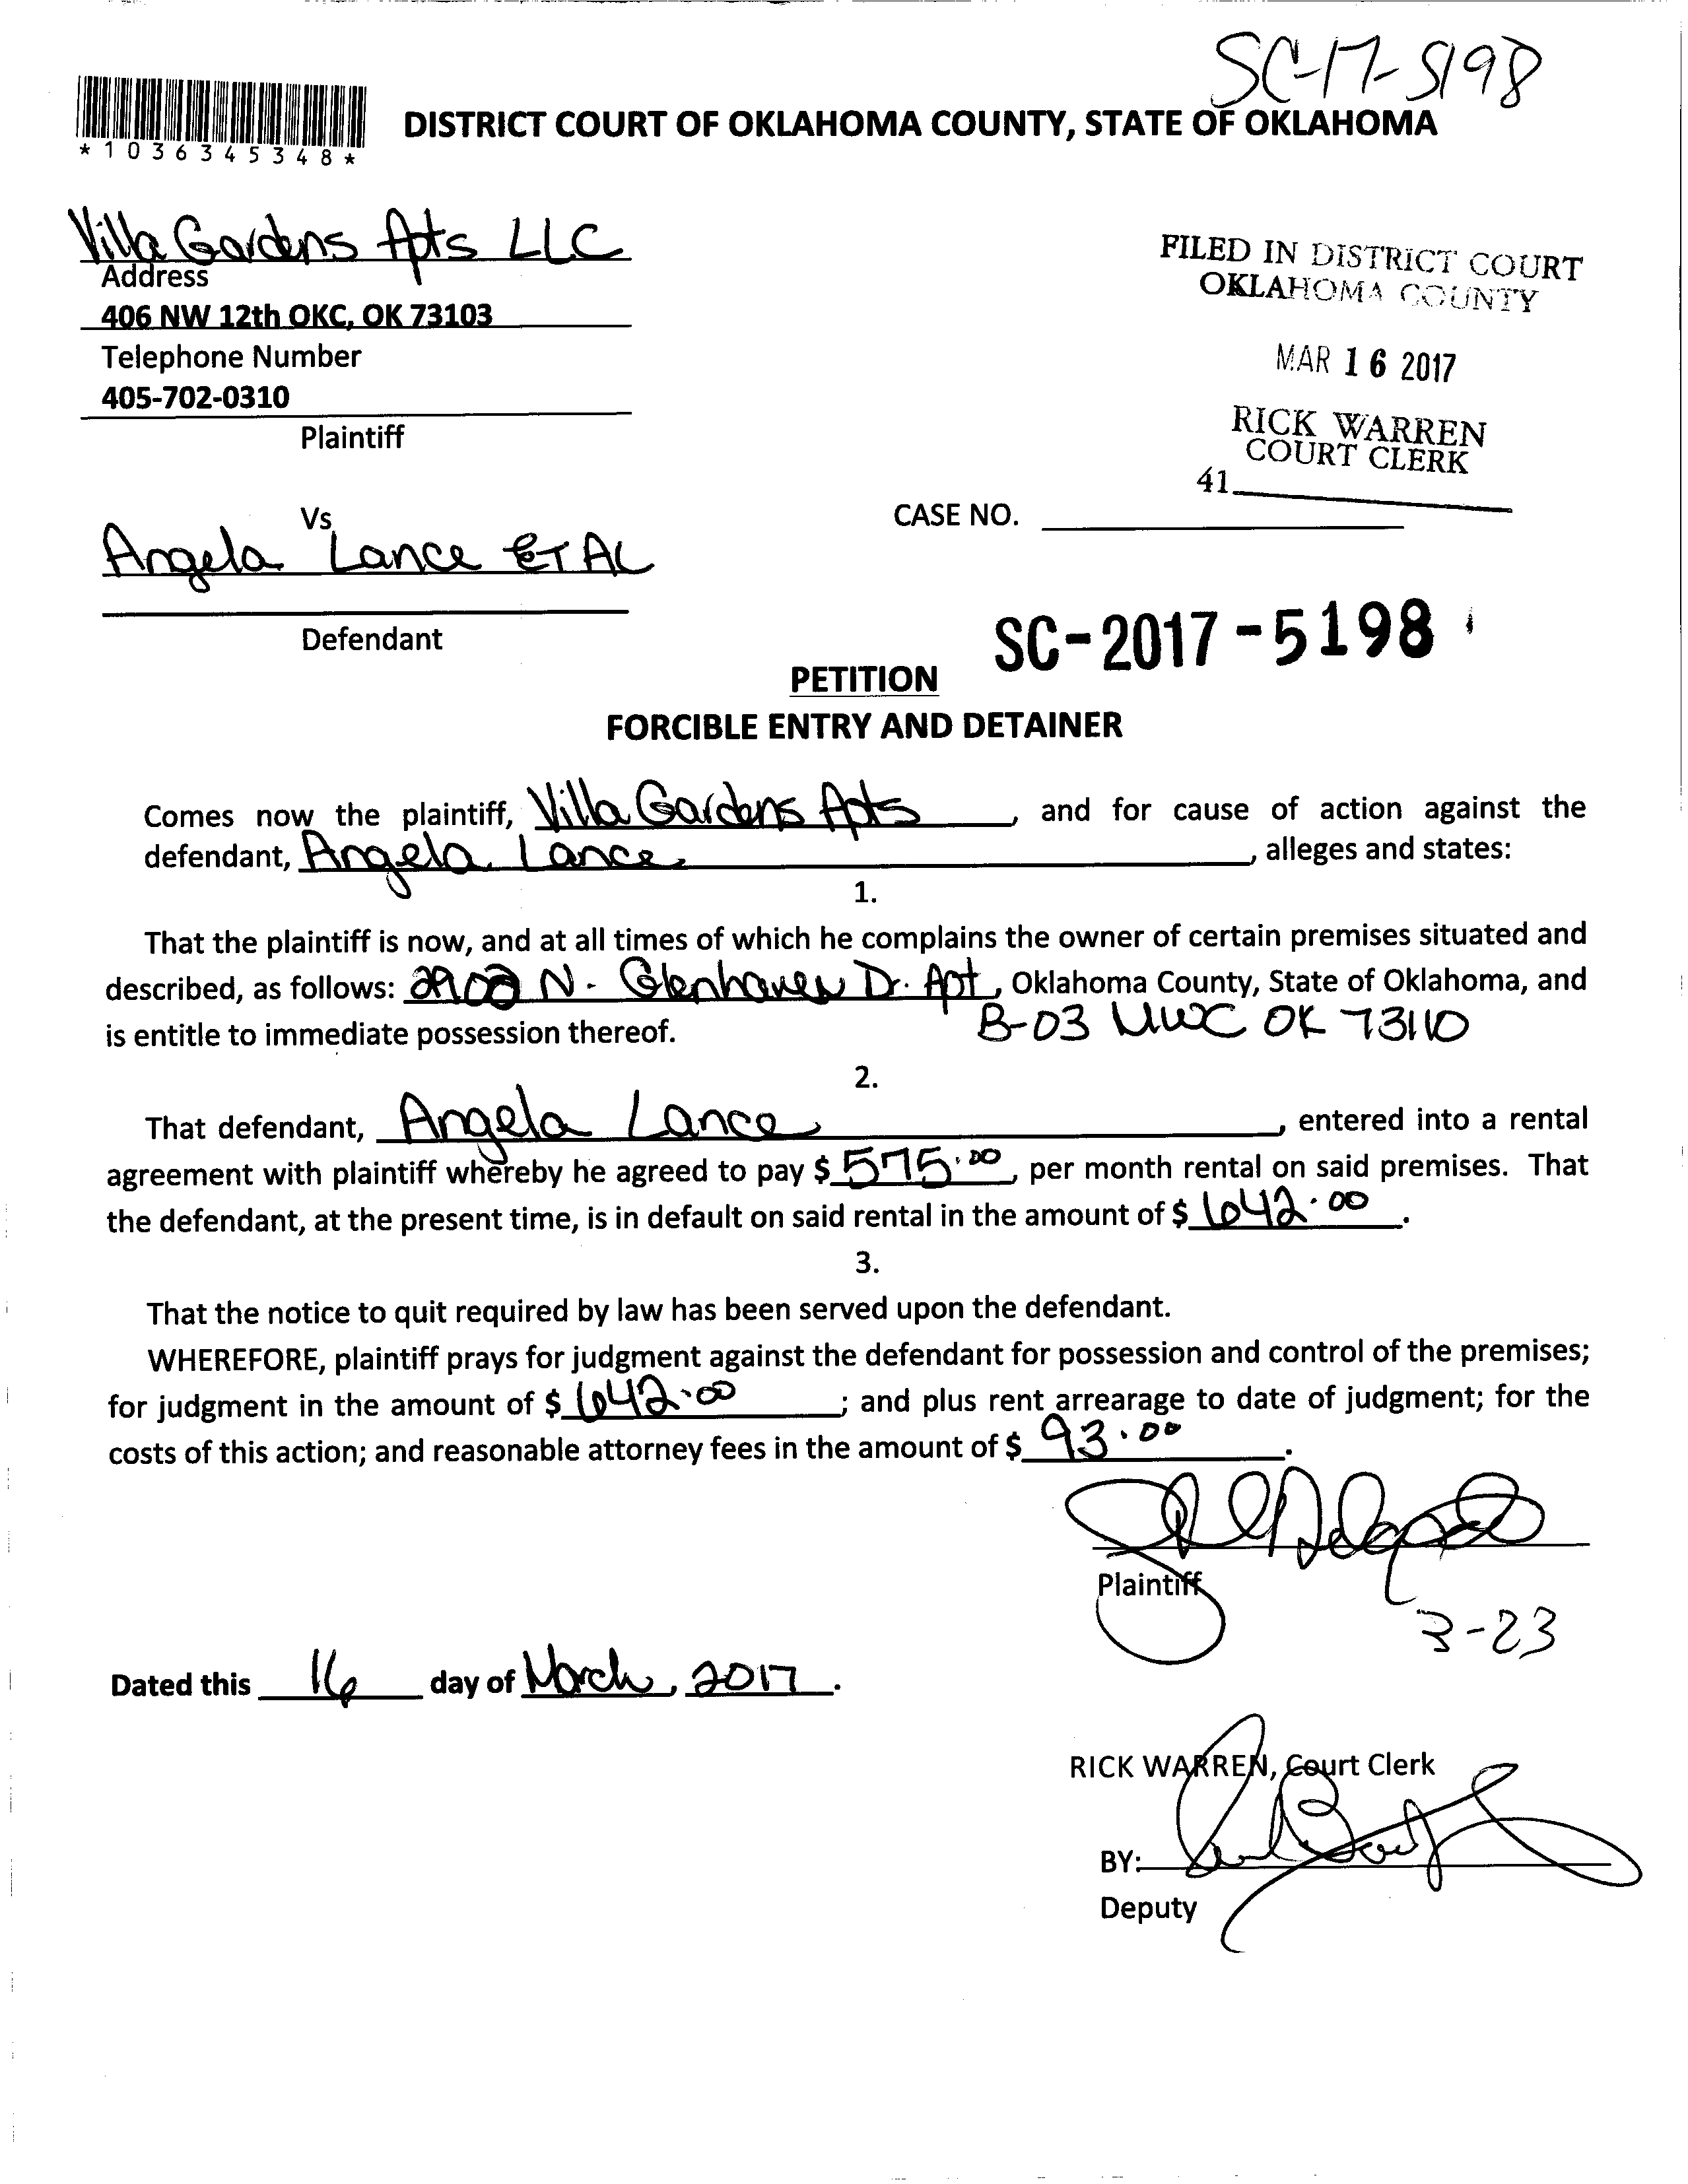 SC-17-5198
*1036345348*
DISTRICT COURT OF OKLAHOMA COUNTY, STATE OF OKLAHOMA
Villa Gardens Apts LLC
Address
406 NW 12th OKC, OK 73103
Telephone Number
405-702-0310
Plaintiff
FILED IN DISTRICT COURT
OKLAHOMA COUNTY
MAR 16 2017
RICK WARREN
COURT CLERK
41
Vs
CASE NO.
Angela Lance ET AL
Defendant
SC-2017-5198
PETITION
FORCIBLE ENTRY AND DETAINER
Comes now the plaintiff, Villa Gardens Apts, and for cause of action against the
defendant, Angela Lance, alleges and states:
1.
That the plaintiff is now, and at all times of which he complains the owner of certain premises situated and
described, as follows: 2902 N. Glenhaven Dr. Apt, Oklahoma County, State of Oklahoma, and
is entitle to immediate possession thereof. B-03 MWC OK 73110
2.
That defendant, Angela Lance, entered into a rental
agreement with plaintiff whereby he agreed to pay $ 575.00, per month rental on said premises. That
the defendant, at the present time, is in default on said rental in the amount of $ 642.00.
3.
That the notice to quit required by law has been served upon the defendant.
WHEREFORE, plaintiff prays for judgment against the defendant for possession and control of the premises;
for judgment in the amount of $ 642.00; and plus rent arrearage to date of judgment; for the
costs of this action; and reasonable attorney fees in the amount of $ 93.00.
Plaintiff
3-23
Dated this 16 day of March, 2017.
RICK WARREN, Court Clerk
BY:
Deputy